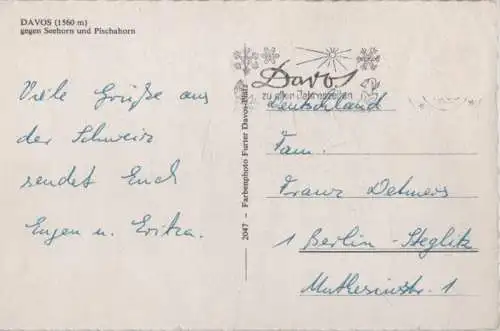 DAVOS (1560 m)
gegen Seehorn und Pischahorn
Viele Grüße aus
der Schweiz
sendet Euch
Eugen u. Erika.
2047 – Farbenphoto Furter Davos-Platz
Davos
zu allen Jahreszeiten
Deutschland
Fam.
Franz Detmers
1 Berlin-Steglitz
Muthesiusstr. 1